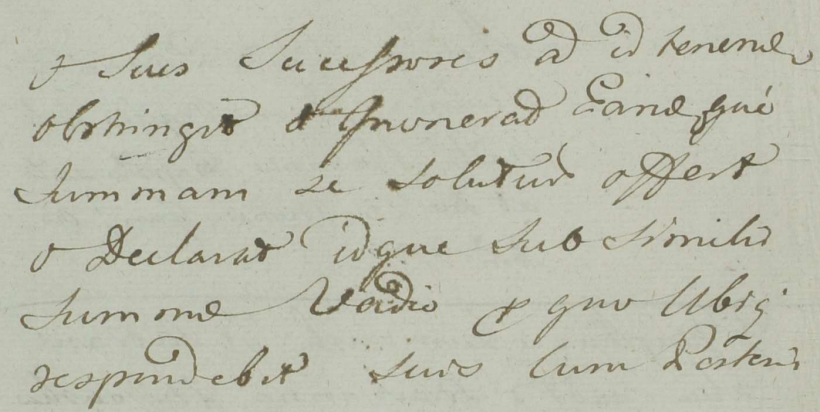 & Suos Sucessores ad id tenend
obstringit & Innonerad Eand, qué
Summam se soluturū offert
& Declarat idque sub simili
Summæ Vadio pr quo Ubiq
respondebit suis cum Posteris